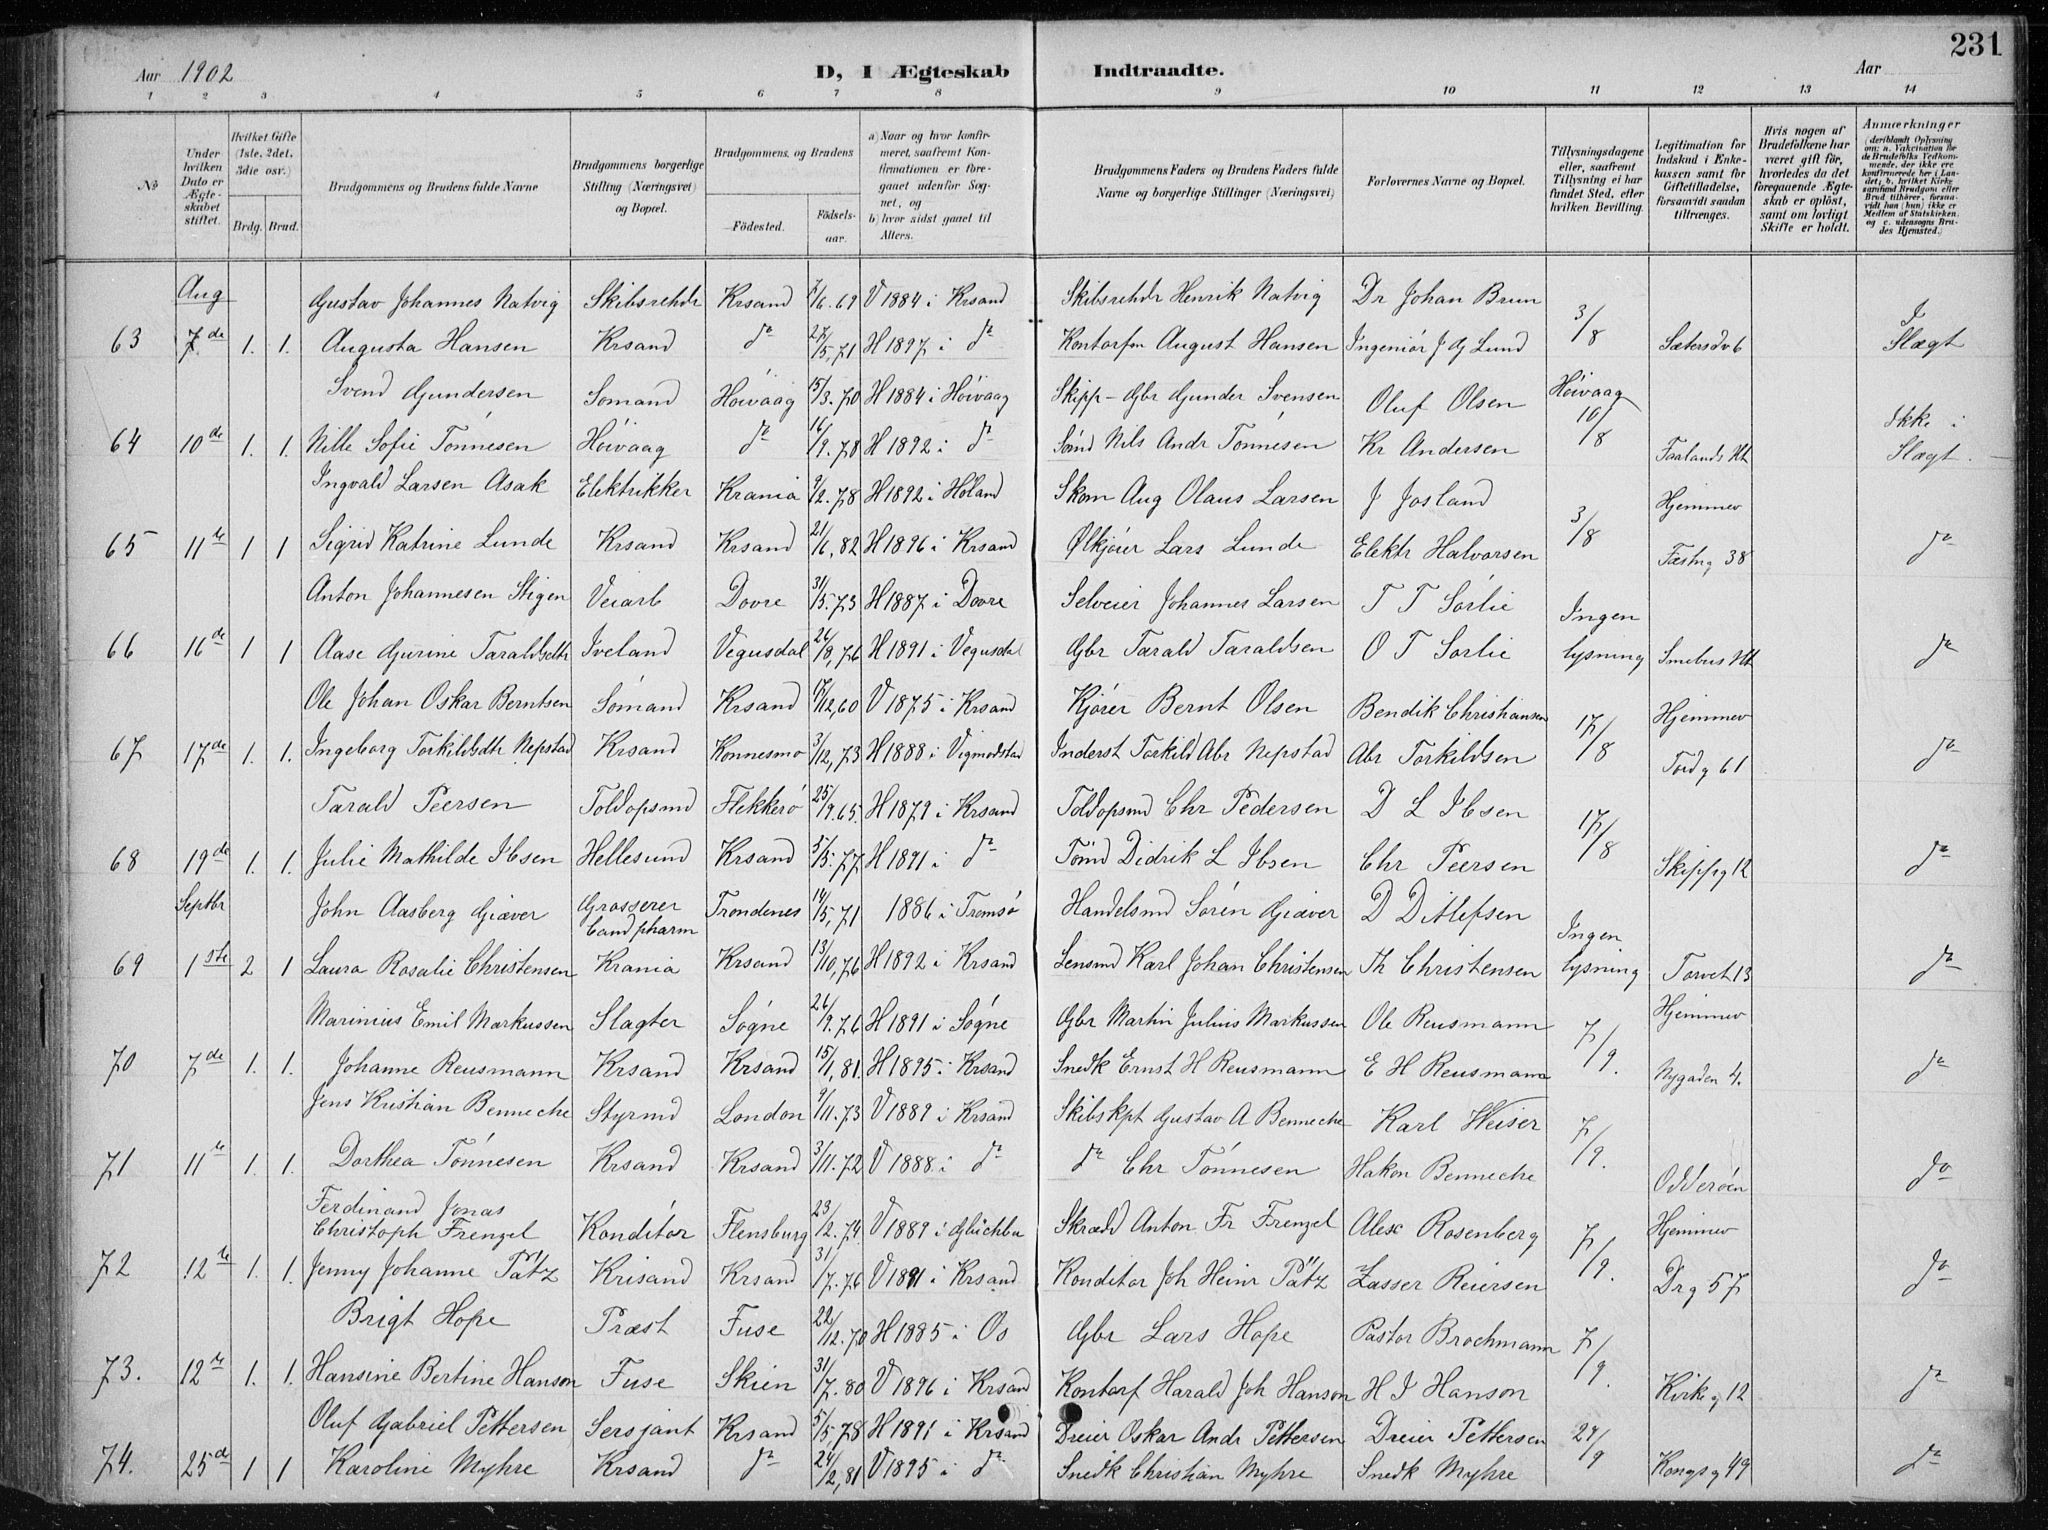 231
Aar 1902 D, I Ægteskab Indtraadte. Aar
1 2 3 4 5 6 7 8 9 10 11 12 13 14
No
Under hvilken Dato er Ægteskabet stiftet.
Hvilket Gifte (1ste, 2det, 3die osv.)
Brdg. Brud.
Brudgommens og Brudens fulde Navne
Brudgommens borgerlige Stilling (Næringsvei) og Bopæl.
Brudgommens, og Brudens
Fødested. Fødselsaar.
a) Naar og hvor konfirmeret, saafremt Konfirmationen er foregaaet udenfor Sognet, og
b) hvor sidst gaaet til Alters.
Brudgommens Faders og Brudens Faders fulde Navne og borgerlige Stillinger (Næringsvei)
Forlovernes Navne og Bopæl.
Tillysningsdagene eller, saafremt Tillysning ei har fundet Sted, efter hvilken Bevilling.
Legitimation for Indskud i Enkekassen samt for Giftetilladelse, forsaavidt saadan tiltrænges.
Hvis nogen af Brudefolkene har været gift før, hvorledes da det foregaaende Ægteskab er opløst, samt om lovligt Skifte er holdt.
Anmærkninger (deriblandt Oplysning om: a. Vaccination for de Brudefolks Vedkommende, der ikke ere konfirmerede her i Landet; b. hvilket Kirkesamfund Brudgom eller Brud tilhører, forsaavidt han (hun) ikke er Medlem af Statskirken, og c. udensogns Brudes Hjemsted.)
Aug Gustav Johannes Natvig Skibsrehdr Krsand /6.69 V 1884 i Krsand Skibsrehdr Henrik Natvig Dr Johan Brun 3/8 I
63 7de 1. 1. Augusta Hansen Krsand do 27/5,71 H 1897 i do Kontorfm August Hansen Ingeniør J G Lund Sætersdv 6 Slægt
Svend Gundersen Sømand Høivaag 15/3.70 H 1884 i Høivaag Skipp - Gbr Gunder Svensen Oluf Olsen Høivaag 10/8 Ikke i
64 10de 1. 1. Nille Sofie Tønnesen Høivaag do 16/9.78 H 1892 i do Sømd Nils Andr Tønnesen Kr Andersen Faalands Ht Slægt
Ingvald Larsen Asak Elektrikker Krania 9/2.78 H 1892 i Høland Skom Aug Olaus Larsen J Josland 3/8 Hjemmev
65 11te 1 1 Sigrid Katrine Lunde Krsand Krsand 21/6,82 H 1896 i Krsand Ølkjører Lars Lunde Elektr Halvorsen Fæstng 38 do
Anton Johannesen Stigen Veiarb Dovre 31/5.73 H 1887 i Dovre Selveier Johannes Larsen T T Sørlie Ingen
66 16de 1 1 Aase Gurine Taraldsdtr Iveland Vegusdal 26/8,76 H 1891 i Vegusdal Gbr Tarald Taraldsen O T Sørlie lysning Smebus Ht do
Ole Johan Oskar Berntsen Sømand Krsand /12,60 V 1875 i Krsand Kjører Bernt Olsen Bendik Christiansen 17/8 Hjemmev
67 17de 1. 1. Ingeborg Torkildsdtr Nepstad Krsand Konnesmo 3/12,73 H 1888 i Vigmodstad Inderst Torkild Abr Nepstad Abr Torkildsen Tordg 61 do
Tarald Peersen Toldopsmd Flekkerø 25/9.65. H 1879 i Krsand Toldopsmd Chr Pedersen D L Ibsen 17/8
68 19de 1. 1. Julie Mathilde Ibsen Hellesund Krsand 5/5.77 H 1891 i do Tømd Didrik L Ibsen Chr Peersen Skipprg 12 do
Septbr John Aasberg Giæver Grosserer Cand pharm Trondenes 14/5,71 1886 i Tromsø Handelsmd Sören Giæver D Ditlefsen Ingen
69 1ste 2 1 Laura Rosalie Christensen Krania Krsand 13/10,76 H 1892 i Krsand Lensmd Karl Johan Christensen Th Christensen lysning Torvet 13 do
Marinius Emil Markussen Slagter Søgne 26/9.76 H 1891 i Søgne Gbr Martin Julius Markussen Ole Reusmann 7/9. Hjemmev
70 7de 1. 1. Johanne Reusmann Krsand Krsand 15/1,81. H 1895 i Krsand Snedk Ernst H Reusmann E H Reusmann Nygaden 4. do
Jens Kristian Benneche Styrmd London 9/11.73 V 1889 i Krsand Skibskpt Gustav A Benneche Karl Weiser 7/9.
71 11te 1. 1. Dorthea Tønnesen Krsand Krsand 3/11.72 V 1888 i do do Chr Tønnesen Hakon Benneche Odderöen do
Ferdinand Jonas Christoph Frenzel Konditor Flensburg 23/2.74 V 1889 i Glückbu Skrædd Anton Fr Frenzel Alex Rosenberg 7/9. Hjemmev
72 12te 1. 1. Jenny Johanne Pätz Krisand Krsand 31/7.76 V 1891 i Krsand Konditor Joh Heinr Pätz Lasser Reiersen Drg 57 do
Brigt Hope Præst Fuse 22/12.70 H 1885 i Os Gbr Lars Hope Pastor Brochmann 7/9.
73. 12te 1. 1. Hansine Bertine Hanson Fuse Skien 31/7.80 V 1896 i Krsand Kontorf Harald Joh Hanson H J Hanson Kirkeg 12 do
Oluf Gabriel Pettersen Sersjant Krsand 5/5.78 H 1891 i Krsand Dreier Oskar Andr Pettersen Dreier Pettersen 29/9
74. 25de 1 1 Karoline Myhre Krsand do 24/2,81 V 1895 i do Snedk Christian Myhre Snedk Myhre Kongsg 49 do